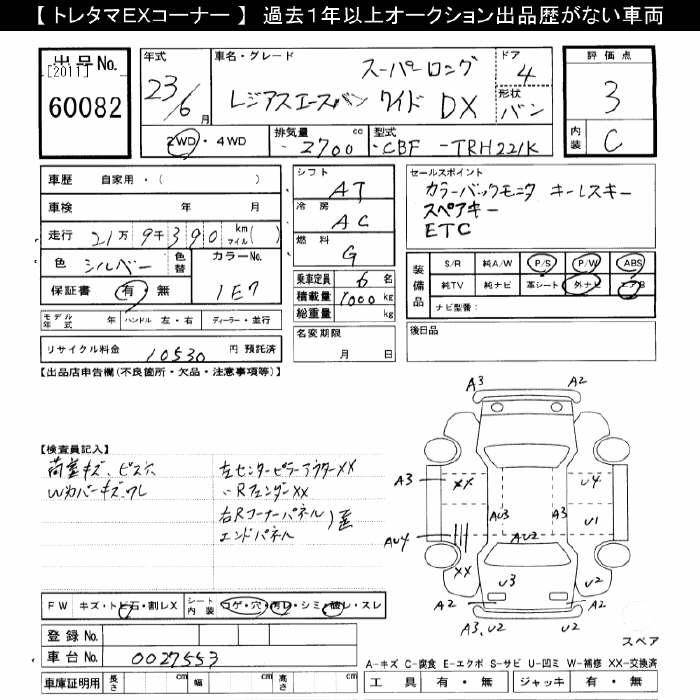 【 トレタマEXコーナー 】 過去１年以上オークション出品歴がない車両
出品No.
[2011]
60082
年式
23/6月
車名・グレード
スーパーロング
レジアスエースバン ワイド DX
ドア
4
形状
バン
評価点
3
内装
C
2WD・4WD
排気量 2700 cc
型式 CBF -TRH221K
車歴 自家用・( )
車検 年 月
走行 21万9千390 km マイル( )
色 シルバー
色替
カラーNo.
1E7
保証書 有 無
モデル年式 年 ハンドル 左・右 ディーラー・並行
リサイクル料金 10530 円 預託済
シフト
AT
冷房
AC
燃料
G
乗車定員 6 名
積載量 1000 kg
総重量 kg
名変期限
月 日
セールスポイント
カラーバックモニタ キーレスキー
スペアキー
ETC
装備品
S/R 純A/W P/S P/W ABS
純TV 純ナビ 革シート 外ナビ エアB
ナビ型番:
後日品
【出品店申告欄(不良箇所・欠品・注意事項等)】
【検査員記入】
荷室キズ、ビス穴
Wカバーキズ、ワレ
左センターピラーアウターXX
〃Rフェンダー XX
右Rコーナーパネル
エンドパネル
A3
A2
A3
XX
U4
AU3
A3
U1
AU4
AU2
XX
U3
U2
U2
A2
A2
A3、U2
A2
FW キズ・トビ石・割レX
シート内装 コゲ・穴・汚レ・シミ・破レ・スレ
登録No.
車台No. 0027553
車庫証明用 長さ cm 幅 cm 高さ cm
スペア
A-キズ C-腐食 E-エクボ S-サビ U-凹ミ W-補修 XX-交換済
工具 有・無 ジャッキ 有・無